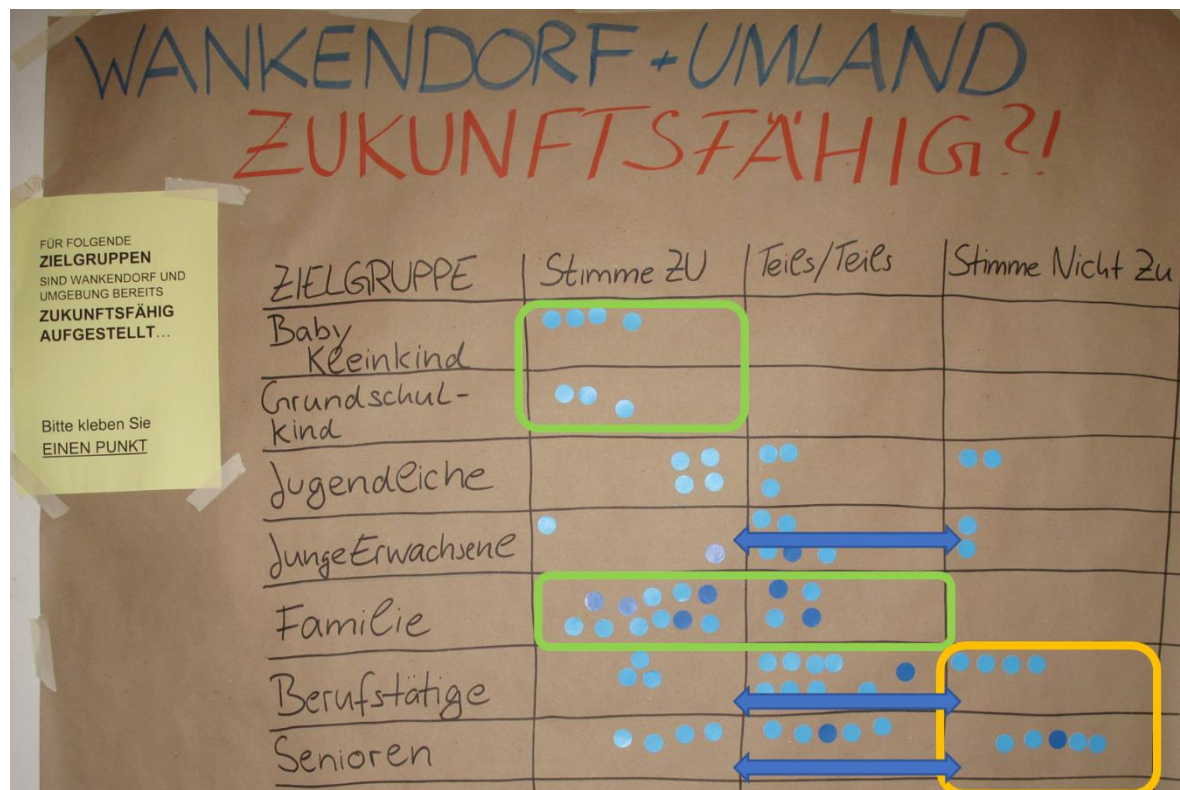 WANKENDORF + UMLAND
ZUKUNFTSFÄHIG?!
FÜR FOLGENDE
ZIELGRUPPEN
SIND WANKENDORF UND
UMGEBUNG BEREITS
ZUKUNFTSFÄHIG
AUFGESTELLT...
Bitte kleben Sie
EINEN PUNKT
ZIELGRUPPE Stimme ZU Teils/Teils Stimme Nicht Zu
Baby
Kleinkind
Grundschul-
kind
Jugendliche
Junge Erwachsene
Familie
Berufstätige
Senioren